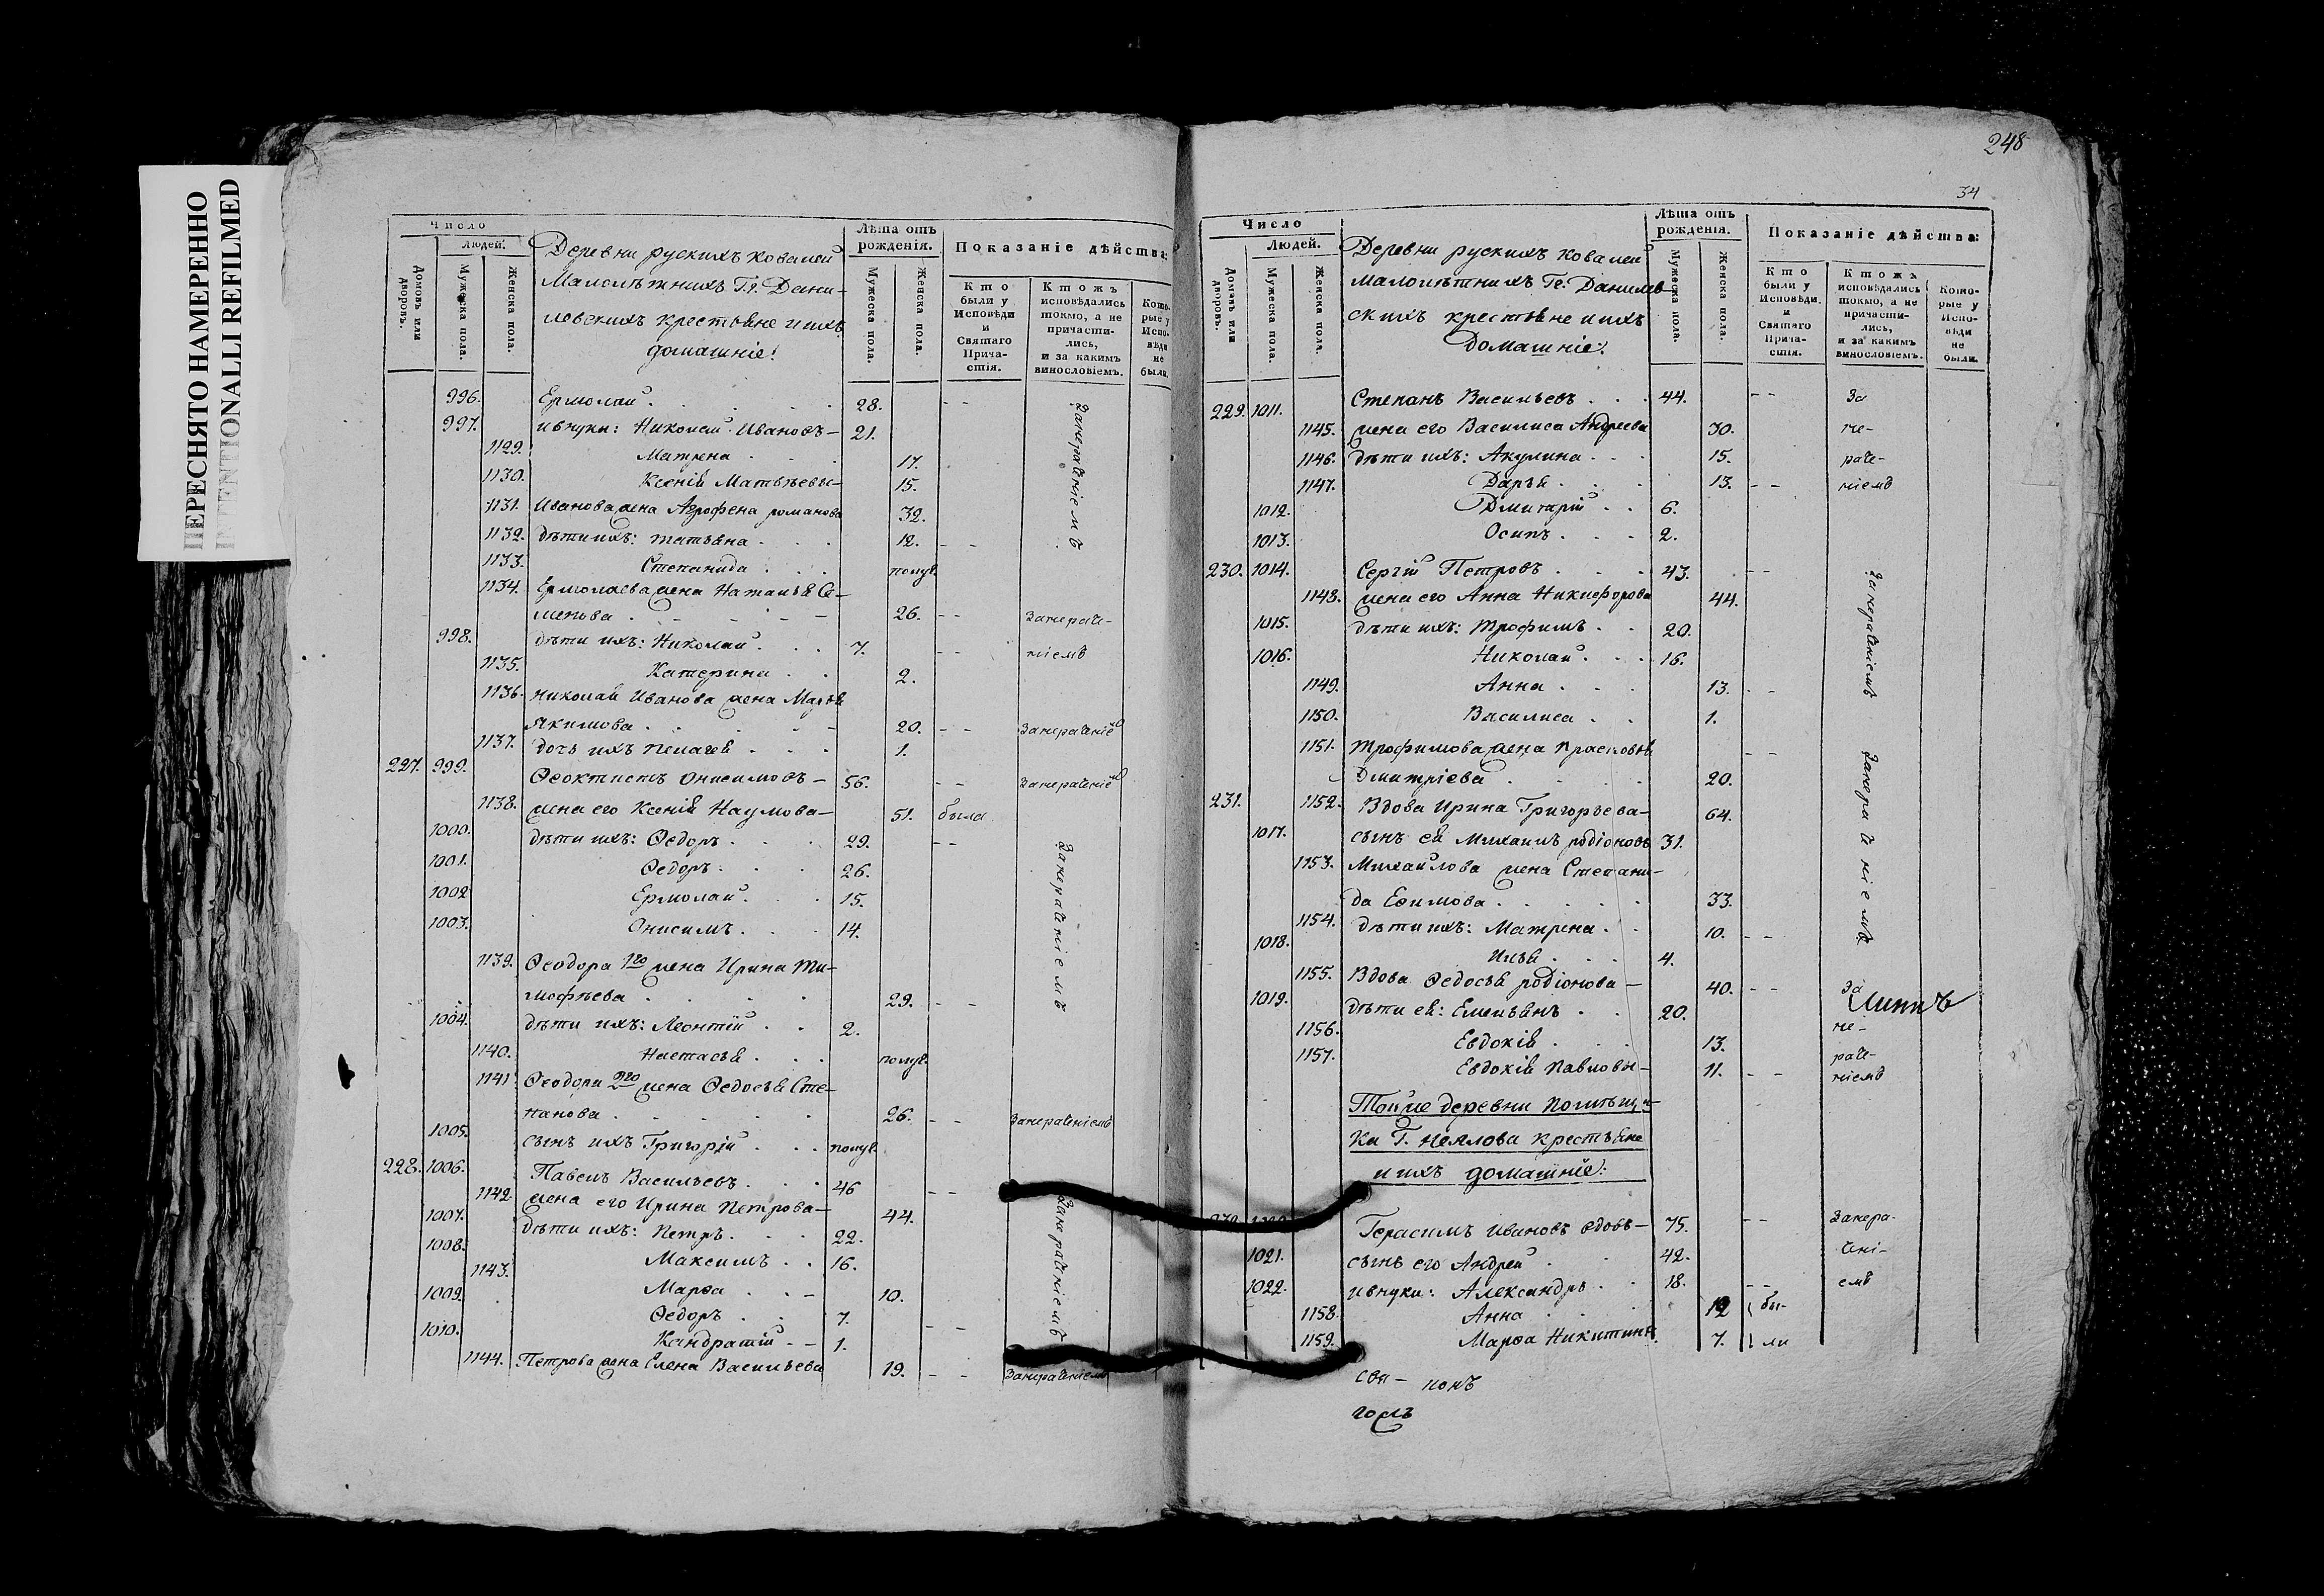 ПЕРЕСНЯТО НАМЕРЕННО
INTENTIONALLI REFILMED
Число
Людей.
Домовъ или дворовъ.
Мужеска пола.
Женска пола.
Деревни рускихъ Ковалей
Малолѣтнихъ Г.г. Дани-
ловскихъ крестьяне и ихъ
домашніе:
Лѣта отъ рожденія.
Мужеска пола.
Женска пола.
Показаніе дѣйства:
Кто были у Исповѣди и Святаго Прича-стія.
Ктожъ исповѣдались токмо, а не причасти-лись, и за какимъ винословіемъ.
Кото-рые у Испо-вѣди не были.
996. Ермолай 28. - -
997. и внуки: Николай Ивановъ 21.
1129. Матрена 17.
1130. Ксенія Матвѣевы 15.
1131. Иванова жена Агрофена романова 32.
1132. дѣти ихъ: татьяна 12. - -
1133. Степанида полув.
Занераченіемъ
1134. Ермолаева жена Наталья Се-
менова 26. - - Занераче-
998. дѣти ихъ: Николай 7. - - ніемъ
1135. Катерина 2.
1136. николай Иванова жена Марья
Якимова 20. - - Занераченіемъ
1137. дочь ихъ пелагея 1.
227. 999. Ѳеоктистъ Онисимовъ 56. - - Занераченіемъ
1138. жена его Ксенія Наумова 51. была
1000. дѣти ихъ: Ѳедоръ 29. - -
1001. Ѳедоръ 26.
1002 Ермолай 15.
1003. Онисимъ 14.
1139. Ѳеодора 1го жена Ирина Ти-
мофѣева 29. - -
1004. дѣти ихъ: Леонтій 2.
Занераченіемъ
1140. Настасья полув.
1141. Ѳеодора 2го жена Ѳедосья Сте-
панова 26. - - Занераченіемъ
1005. сынъ ихъ Григорій полув.
228. 1006. Павелъ Васильевъ 46 - -
1142. жена его Ирина Петрова 44.
1007. дѣти ихъ: Петръ 22.
1008. Максимъ 16.
1143. Марѳа 10.
1009. Ѳедоръ 7. - -
1010. Кандратій 1.
Занераченіемъ
1144. Петрова жена Елена Васильева 19. - - Занераченіемъ
248
34
Число
Людей.
Домовъ или дворовъ.
Мужеска пола.
Женска пола.
Деревни рускихъ Ковалей
малолѣтнихъ Гг. Данилов-
скихъ крестьяне и ихъ
домашніе:
Лѣта отъ рожденія.
Мужеска пола.
Женска пола.
Показаніе дѣйства:
Кто были у Исповѣди и Святаго Прича-стія.
Ктожъ исповѣдались токмо, а не причасти-лись, и за какимъ винословіемъ.
Кото-рые у Испо-вѣди не были.
229. 1011. Степанъ Васильевъ 44. - - За
1145. жена его Василиса Андреева 30. не-
1146. дѣти ихъ: Акулина 15. раче-
1147. Дарья 13. - - ніемъ
1012. Дмитрій 6.
1013. Осипъ 2.
230. 1014. Сергій Петровъ 43. - -
1148. жена его Анна Никифорова 44.
1015. дѣти ихъ: Трофимъ 20.
1016. Николай 16.
1149. Анна 13. - -
Занераченіемъ
1150. Василиса 1.
1151. Трофимова жена прасковья - -
Дмитріева 20.
231. 1152. Вдова Ирина Григорьева 64.
1017. сынъ ея Михаилъ родіоновъ 31.
1153. Михайлова жена Степани-
да Еѳимова 33.
1154. дѣти ихъ: Матрена 10. - -
1018. Илья 4.
Занераченіемъ
1155. Вдова Ѳедосья родіонова 40. - - За
1019. дѣти ея: Емельянъ 20. не-
1156. Евдокія 13. раче-
1157. Евдокія павловы 11. - - ніемъ
Тойже деревни помѣщи-
ка Г. Неялова крестьяне
и ихъ домашніе:
Герасимъ Ивановъ вдовъ 75. - - Занера-
1021. сынъ его Андрей 42. чені-
1022. и внуки: Александръ 18. - - емъ
1158. Анна 12 бы-
1159. Марѳа Никитины 7. ли